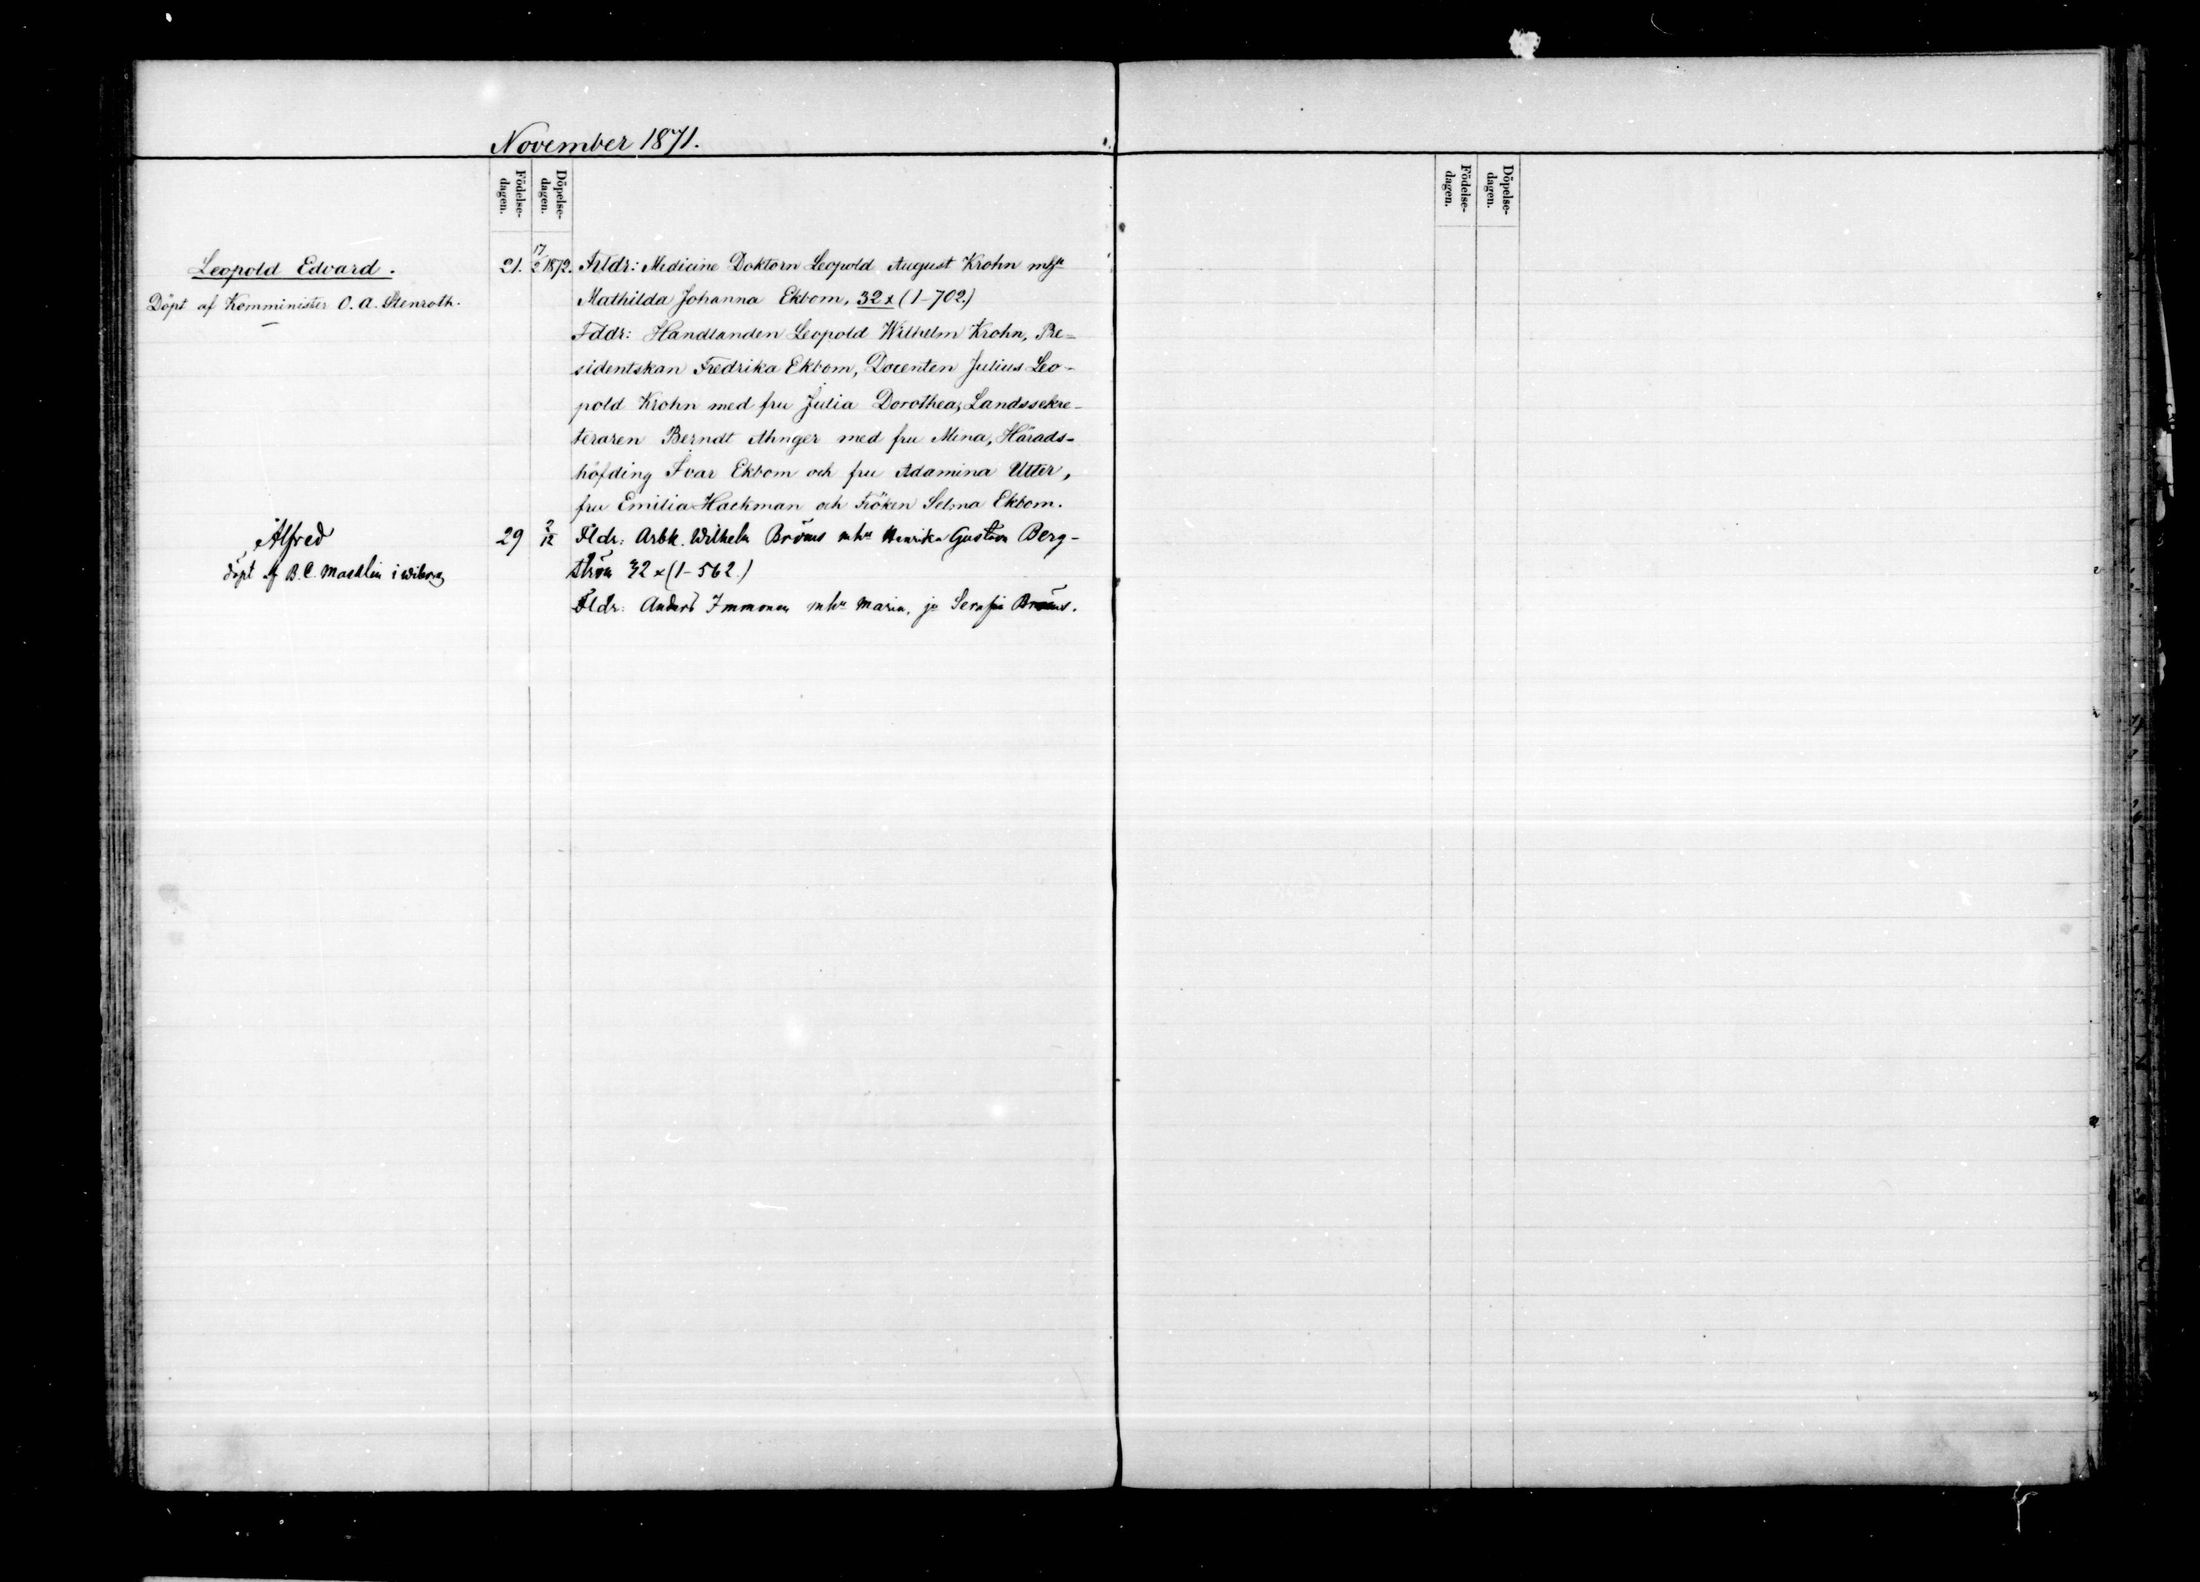 November 1871.
Födelse-
dagen.
Döpelse-
dagen.
Födelse-
dagen.
Döpelse-
dagen.
Leopold Edvard.
Döpt af Komminister O. A. Stenroth.
21. 17/2 1872. Frldr: Medicine Doktorn Leopold August Krohn
Mathilda Johanna Ekbom, 32 x (1-702.)
Fddr: Handlanden Leopold Wilhelm Krohn, Pre-
sidentskan Fredrika Ekbom, Docenten Julius Leo-
pold Krohn med fru Julia Dorothea, Landssekre-
teraren Berndt Ahnger med fru Mina, Härads-
höfding Ivar Ekbom och fru Adamina Utter,
fru Emilia Hackman och Fröken Selma Ekbom.
Alfred
döpt af B. C. i Wiborg
29 2/12 Fldr: Arbk. Wilhelm mhu Henrika Gustava Berg-
ström 32 x (1-562.)
Fldr: Anders Immonen mhu Maria, jn